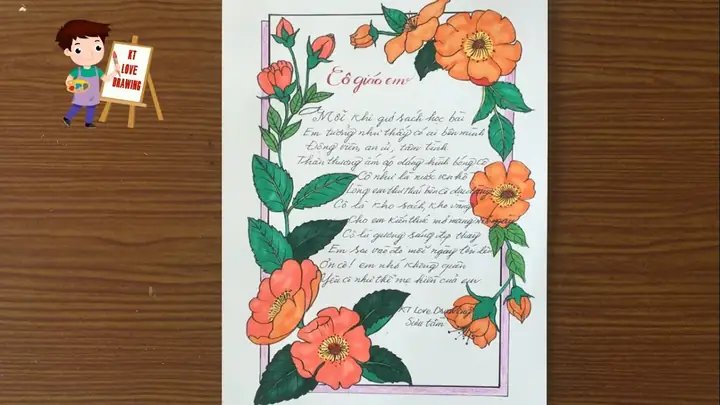 KT
LOVE
DRAWING
Cô giáo em
Mỗi khi giở sách học bài
Em tưởng như thấy có ai bên mình
Động viên, an ủi, tâm tình
Thân thương ấm áp dáng hình bóng cô
Cô như là nước
Cô là kho sách, kho vàng
Cho em kiến thức mở mang
Cô là gương sáng đẹp thay
Em soi vào đó mỗi ngày lớn lên
Ơn cô! em nhớ không quên
Yêu cô như thể mẹ hiền của em
KT Love Drawing
Sưu tầm